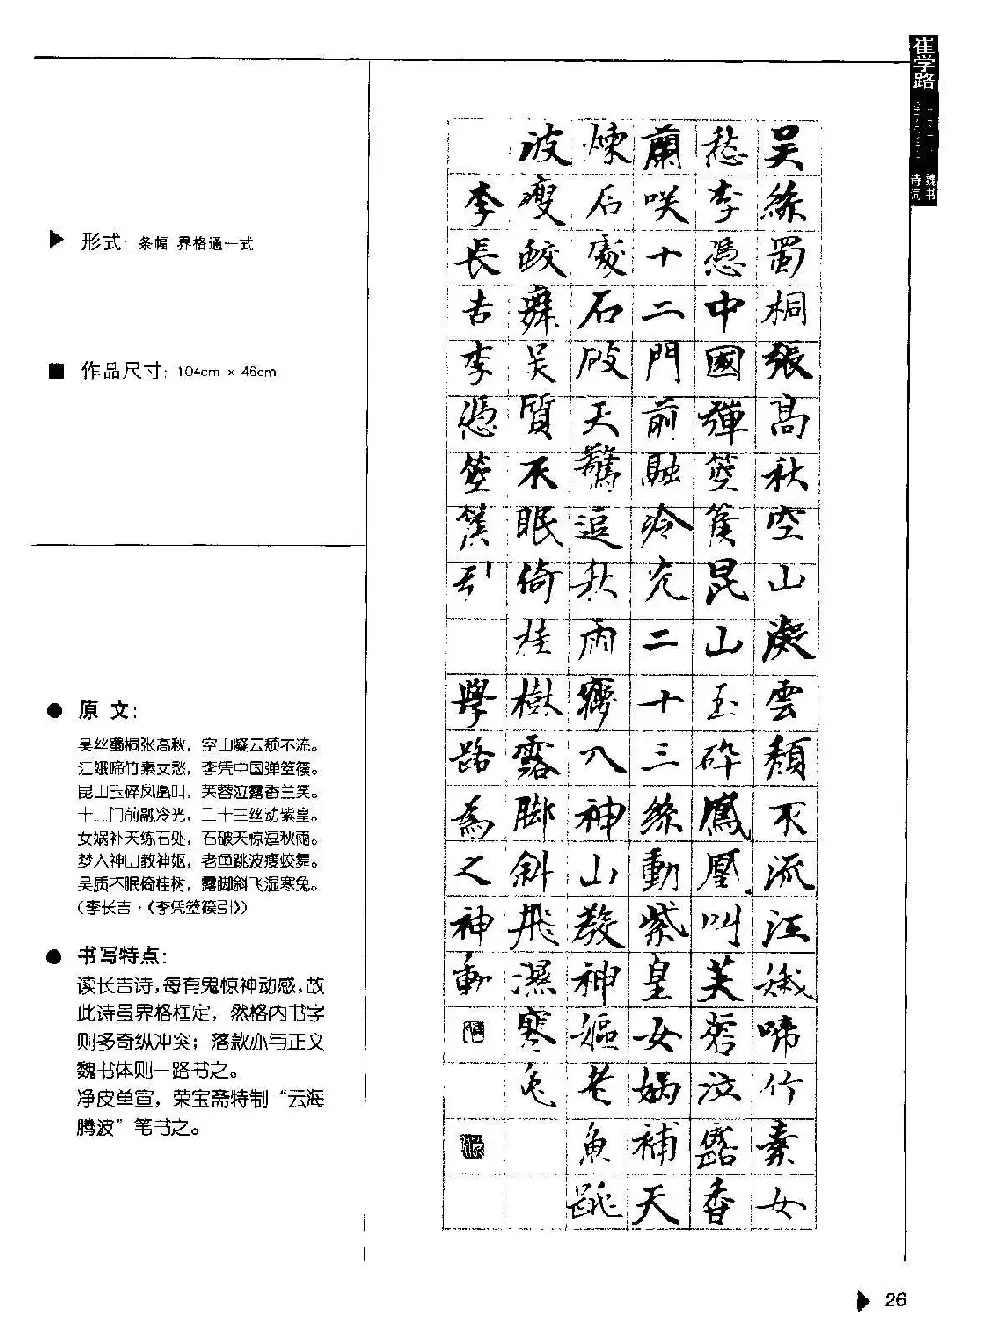 崔学路
魏书
诗词
▶ 形式 条幅 界格通一式
■ 作品尺寸: 104cm × 46cm
● 原文:
吴丝蜀桐张高秋，空山凝云颓不流。
江娥啼竹素女愁，李凭中国弹箜篌。
昆山玉碎凤凰叫，芙蓉泣露香兰笑。
十二门前融冷光，二十三丝动紫皇。
女娲补天练石处，石破天惊逗秋雨。
梦入神山教神妪，老鱼跳波瘦蛟舞。
吴质不眠倚桂树，露脚斜飞湿寒兔。
(李长吉·《李凭箜篌引》)
● 书写特点:
读长吉诗，每有鬼惊神动感，故
此诗虽界格框定，然格内书字
则多奇纵冲突；落款亦与正文
魏书体则一路书之。
净皮单宣，荣宝斋特制“云海
腾波”笔书之。
吳絲蜀桐張高秋空山凝雲頹不流江娥啼竹素女
愁李憑中國彈箜篌昆山玉碎鳳凰叫芙蓉泣露香
蘭咲十二門前融冷光二十三絲動紫皇女媧補天
煉石處石破天驚逗秋雨夢入神山教神嫗老魚跳
波瘦蛟舞吳質不眠倚桂樹露脚斜飛濕寒兔
李長吉李憑箜篌引 學路為之神動
26